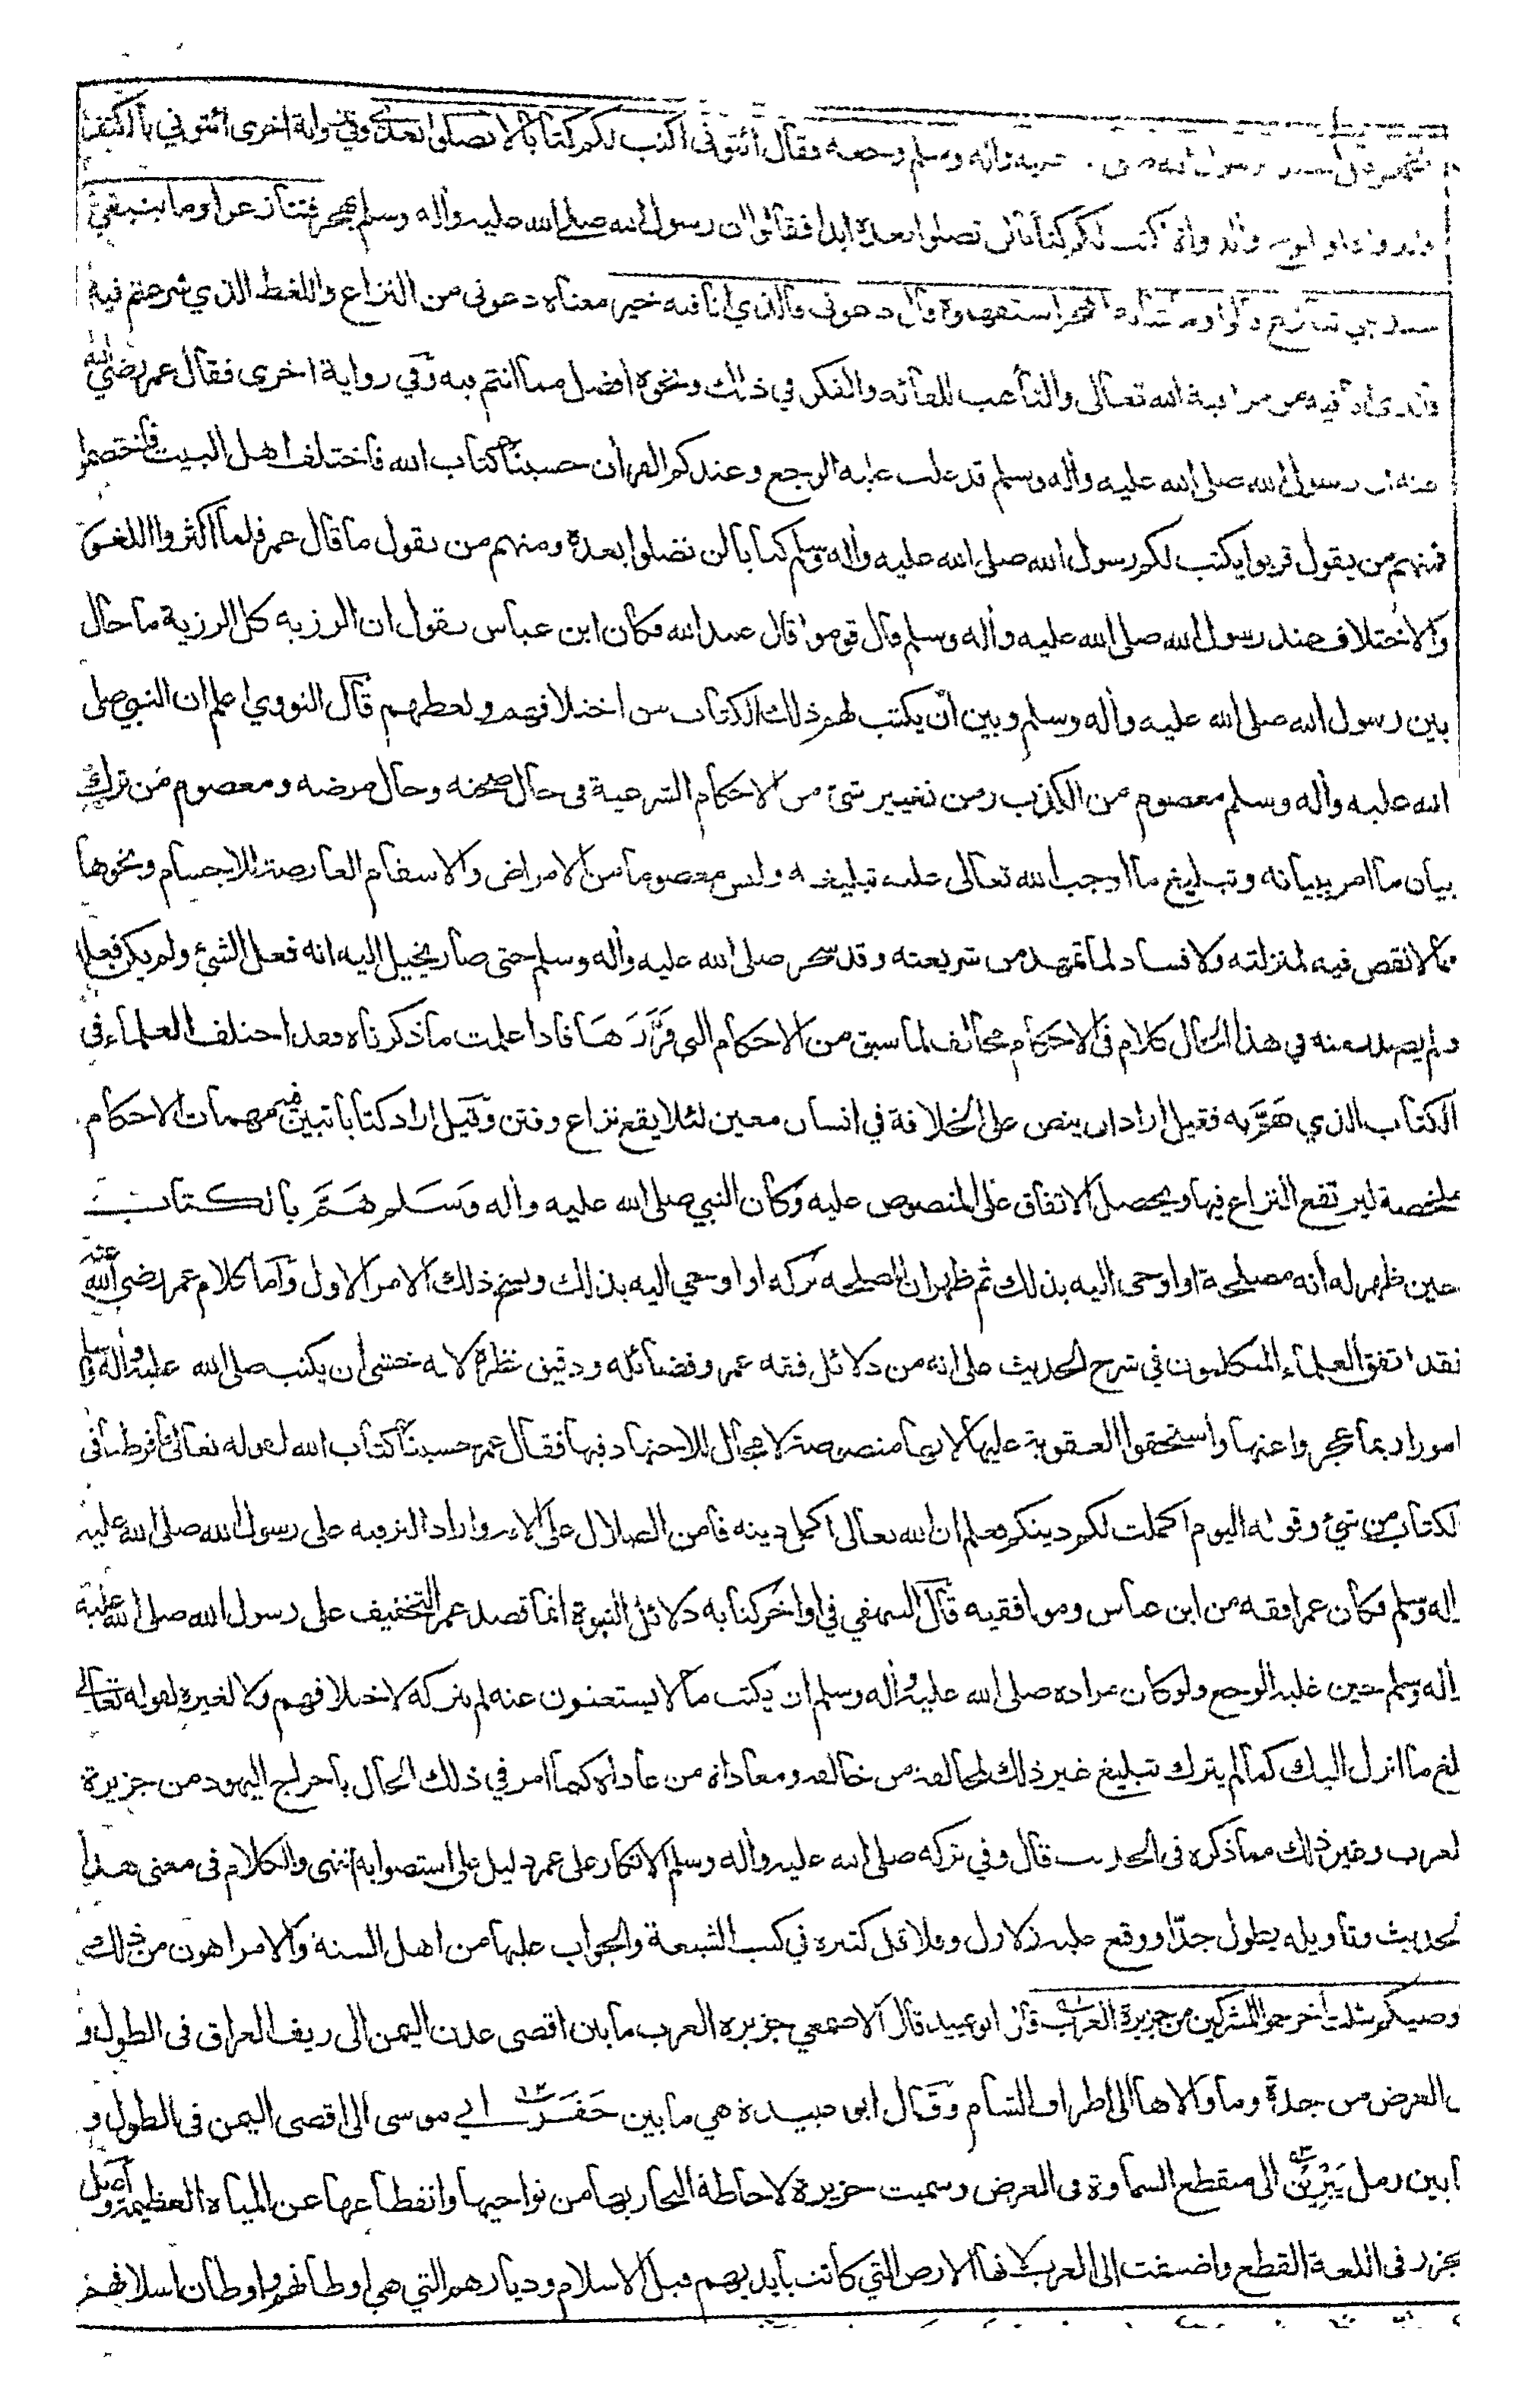 رسول الله صلى عليه واله وسلم وجعه فقال ائتونى اكتب لكم كتابا لا تضلوا بعدى وفي رواية اخرى ائتوني بالكتف
والدواة اكتب لكم كتابا لن تضلوا بعده ابدا فقالوا ان رسول الله صلى الله عليه واله وسلم يهجر فتنازعوا وما ينبغي
تنازع وقالوا ما شأنه اهجر استفهموه قال دعونى فالذي انا فيه خير معناه دعونى من النزاع واللغط الذي شرعتم فيه
فيه من مراقبة الله تعالى والتأهب للقائه والفكر في ذلك ونحوه افضل مما انتم فيه وفي رواية اخرى فقال عمر رضي الله
عنه ان رسول الله صلى الله عليه واله وسلم قد غلب عليه الوجع وعندكم القرأن حسبنا كتاب الله فاختلف اهل البيت فاختصموا
فمنهم من يقول قربوا يكتب لكم رسول الله صلى الله عليه واله وسلم كتابا لن تضلوا بعده ومنهم من يقول ما قال عمر فلما اكثروا اللغو
والاختلاف عند رسول الله صلى الله عليه واله وسلم قال قوموا قال عبد الله فكان ابن عباس يقول ان الرزية كل الرزية ما حال
بين رسول الله صلى الله عليه واله وسلم وبين أن يكتب لهم ذلك الكتاب من اختلافهم ولغطهم قال النووي اعلم ان النبي صلى
الله عليه واله وسلم معصوم من الكذب ومن تغيير شئ من الاحكام الشرعية فى حال صحته وحال مرضه ومعصوم من ترك
بيان ما امر ببيانه وتبليغ ما اوجب الله تعالى عليه تبليغه وليس معصوما من الامراض والاسقام العارضة للاجسام ونحوها
مما لا نقص فيه لمنزلته ولا فساد لما تمهد من شريعته وقد سحر صلى الله عليه واله وسلم حتى صار يخيل اليه انه فعل الشئ ولم يكن فعله
ولم يصدر منه في هذا الحال كلام فى الاحكام مخالف لما سبق من الاحكام التى قررها فاذا علمت ما ذكرناه فقد اختلف العلماء فى
الكتاب الذي همّ به فقيل اراد ان ينص على الخلافة في انسان معين لئلا يقع نزاع وفتن وقيل اراد كتابا تبين فيه مهمات الاحكام
ملخصة ليرتفع النزاع فيها ويحصل الاتفاق على المنصوص عليه وكان النبي صلى الله عليه واله وسلم همّ بالكتاب
حين ظهر له أنه مصلحة او اوحى اليه بذلك ثم ظهر ان المصلحة تركه او اوحي اليه بذلك ونسخ ذلك الامر الاول وأما كلام عمر رضي الله عنه
فقد اتفق العلماء المتكلمون في شرح الحديث على انه من دلائل فقه عمر وفضائله ودقيق نظره لانه خشى أن يكتب صلى الله عليه واله وسلم
امورا ربما عجزوا عنها واستحقوا العقوبة عليها لانها منصوصة لا مجال للاجتهاد فيها فقال عمر حسبنا كتاب الله لقوله تعالى ما فرطنا فى
الكتاب من شئ وقوله اليوم اكملت لكم دينكم فعلم ان الله تعالى اكمل دينه فامن الضلال على الامة واراد الترفيه على رسول الله صلى الله عليه
واله وسلم فكان عمر افقه من ابن عباس وموافقيه قال البيهقي في اواخر كتابه دلائل النبوة انما قصد عمر التخفيف على رسول الله صلى الله عليه
واله وسلم حين غلبه الوجع ولو كان مراده صلى الله عليه واله وسلم ان يكتب ما لا يستغنون عنه لم يتركه لاختلافهم ولا لغيره لقوله تعالى
بلغ ما انزل اليك كما لم يترك تبليغ غير ذلك لمخالفة من خالفه ومعاداة من عاداه كما امر في ذلك الحال باخراج اليهود من جزيرة
العرب وغير ذلك مما ذكره فى الحديث قال وفي تركه صلى الله عليه واله وسلم الانكار على عمر دليل على استصوابه انتهى والكلام فى معنى هذا
الحديث وتأويله يطول جدّا ووقع عليه زلازل وقلاقل كثيره في كتب الشيعة والجواب عليها من اهل السنة والامر اهون من ذلك
اوصيكم بثلث أخرجوا المشركين من جزيرة العرب قال ابو عبيد قال الاصمعي جزيره العرب ما بين اقصى عدن اليمن الى ريف العراق فى الطول و
فى العرض من جدة وما والاها الى اطراف الشام وقال ابو عبيدة هي ما بين حَفَر ابي موسى الى اقصى اليمن فى الطول و
ما بين رمل يَبْرِين الى منقطع السماوة فى العرض وسميت جزيرة لاحاطة البحار بها من نواحيها وانقطاعها عن المياه العظيمة واصل
الجزر فى اللغة القطع واضيفت الى العرب لانها الارض التي كانت بأيديهم قبل الاسلام وديارهم التي هي اوطانهم واوطان اسلافهم